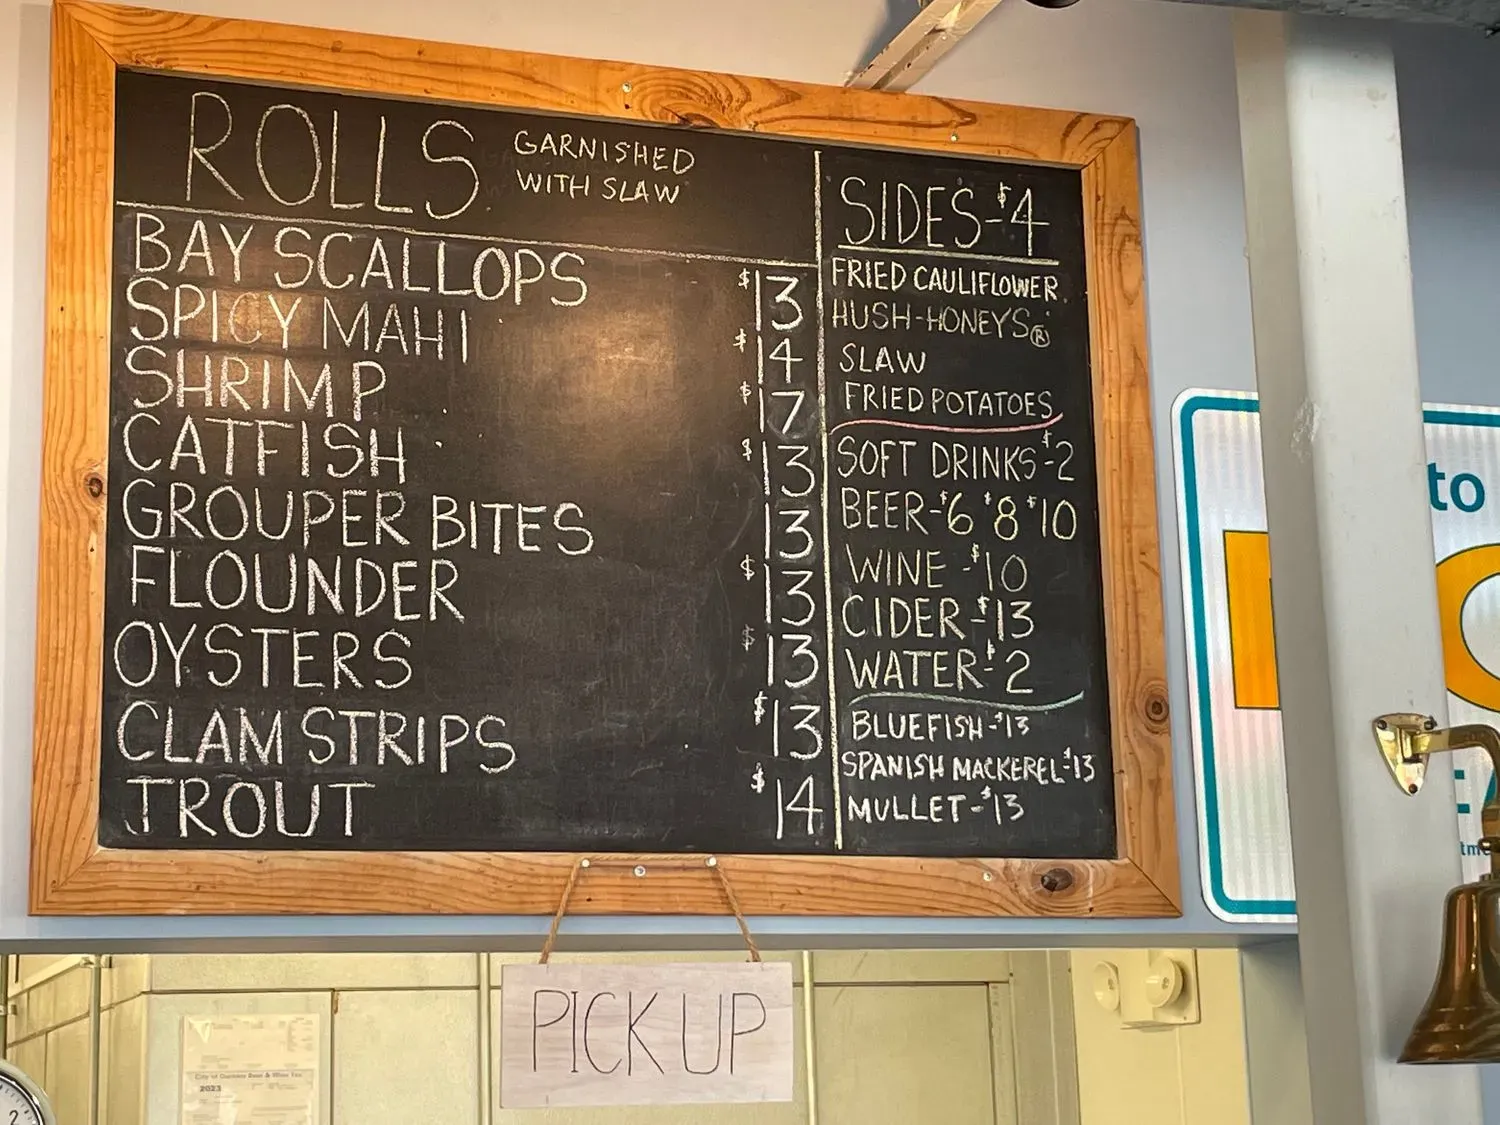 ROLLS GARNISHED
WITH SLAW
BAY SCALLOPS $13
SPICY MAHI $14
SHRIMP $17
CATFISH $13
GROUPER BITES 13
FLOUNDER $13
OYSTERS $13
CLAM STRIPS $13
TROUT $14
SIDES-$4
FRIED CAULIFLOWER
HUSH-HONEYS®
SLAW
FRIED POTATOES
SOFT DRINKS-$2
BEER-$6 $8 $10
WINE-$10
CIDER-$13
WATER-$2
BLUEFISH-$13
SPANISH MACKEREL-$13
MULLET-$13
PICK UP
to
2023
2